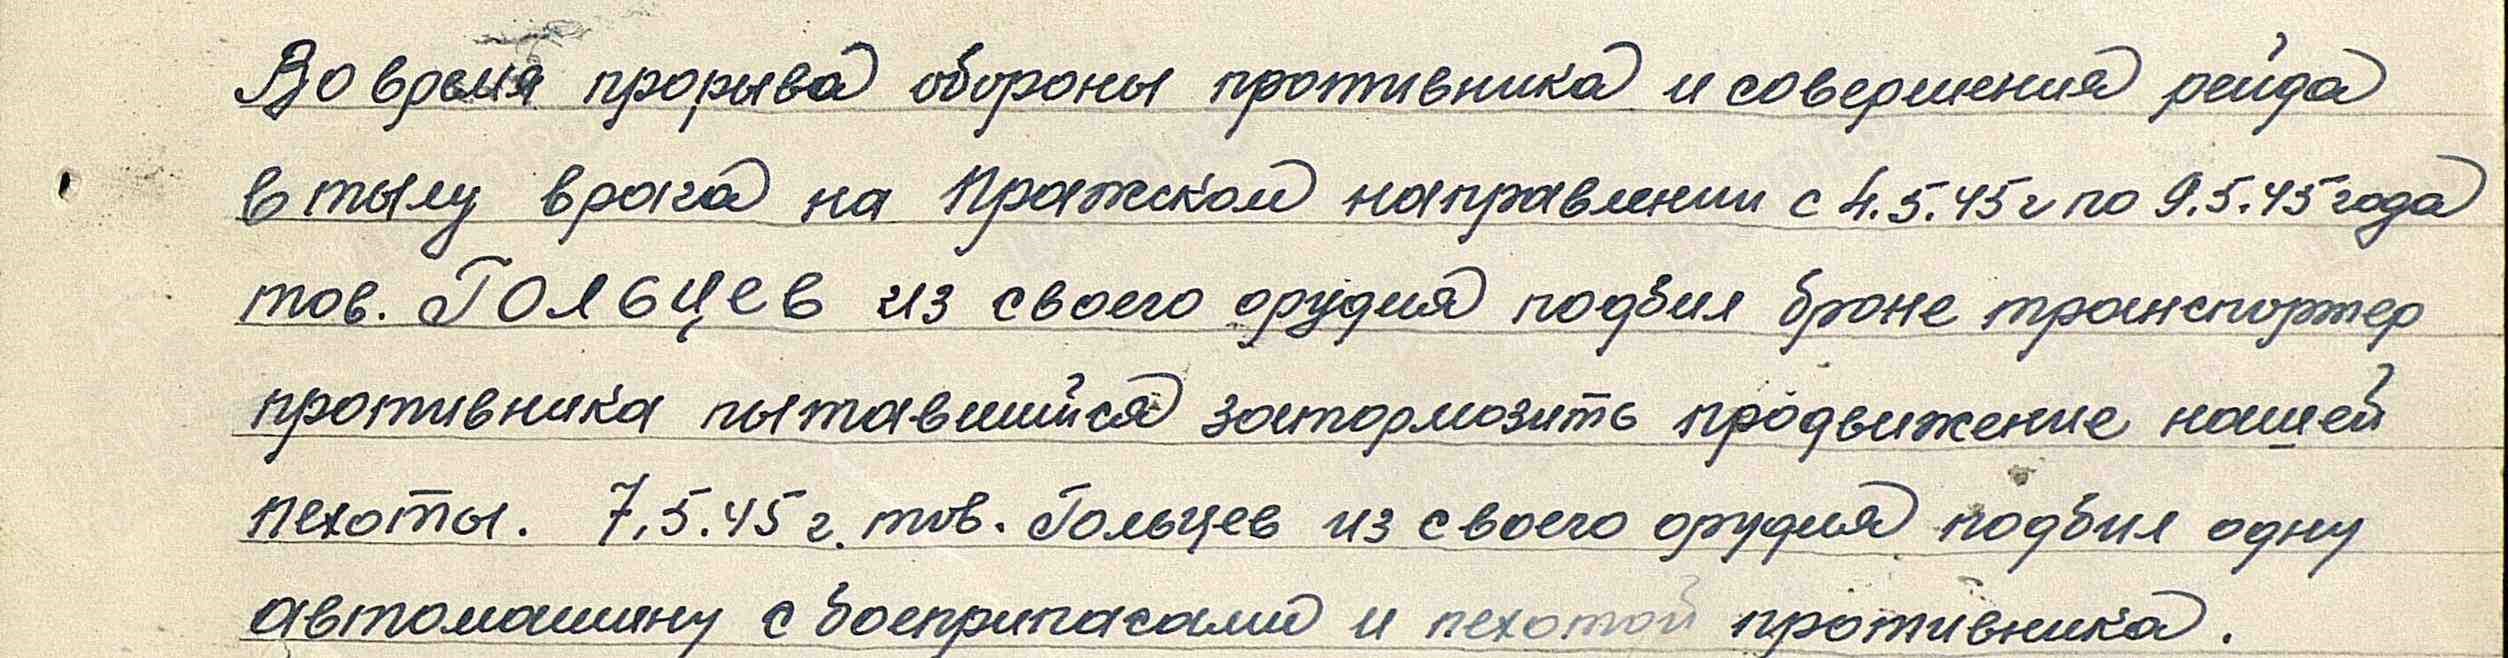 Во время прорыва обороны противника и совершения рейда
в тылу врага на Пражском направлении с 4.5.45г по 9.5.45 года
тов. ГОЛЬЦЕВ из своего орудия подбил броне транспортер
противника пытавшийся затормозить продвижение нашей
пехоты. 7.5.45 г. тов. Гольцев из своего орудия подбил одну
автомашину с боеприпасами и пехотой противника.